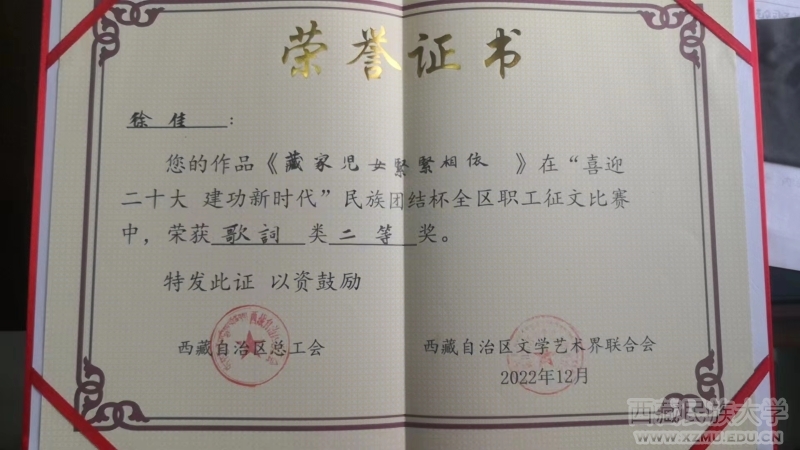 荣誉证书
徐佳：
您的作品《藏家児女緊緊相依》在“喜迎
二十大 建功新时代”民族团结杯全区职工征文比赛
中，荣获歌詞类二等奖。
特发此证 以资鼓励
西藏自治区总工会 西藏自治区文学艺术界联合会
2022年12月
西藏民族大学
WWW.XZMU.EDU.CN